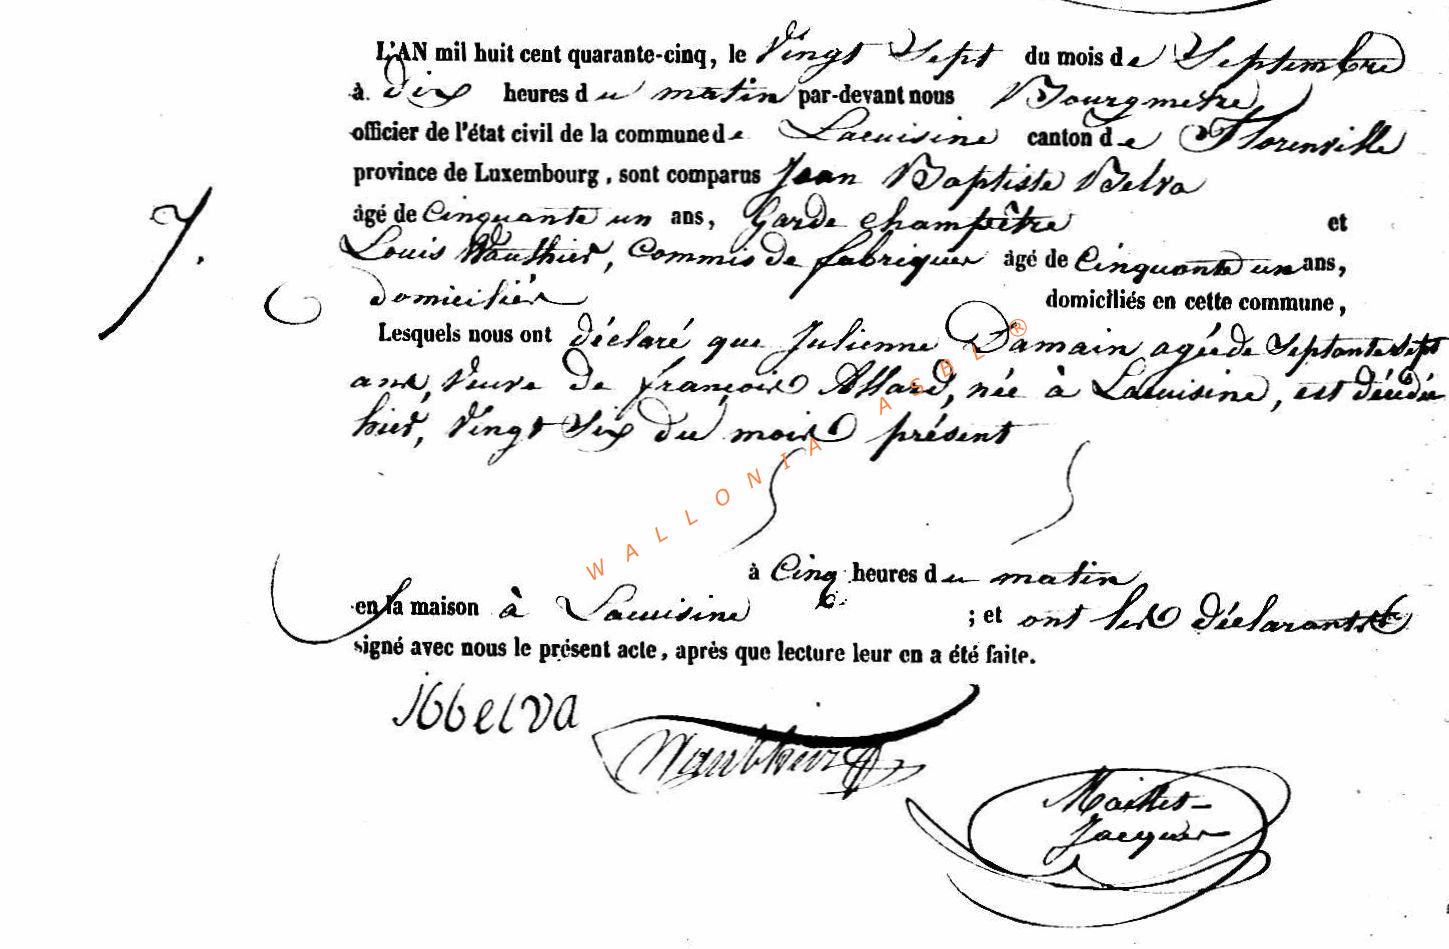 L'AN mil huit cent quarante-cinq, le Vingt Sept du mois de Septembre
à dix heures du matin par-devant nous Bourgmetre
officier de l'état civil de la commune de Lacuisine canton de Florenville
province de Luxembourg, sont comparus Jean Baptiste Belva
âgé de Cinquante un ans, Garde champêtre et
7.
Louis Wauthier, Commis de fabriques âgé de Cinquante un ans,
domiciliés domiciliés en cette commune,
Lesquels nous ont déclaré que Julienne Damain agée de Septante Sept
ans, Veuve de françois Allard, née à Lacuisine, est décédée
hier, Vingt Six du mois présent
WALLONIA ASBL ®
à Cinq heures du matin
en la maison à Lacuisine ; et ont les déclarants
signé avec nous le présent acte, après que lecture leur en a été faite.
jbbelva
Wauthier
Maillet-
Jacques